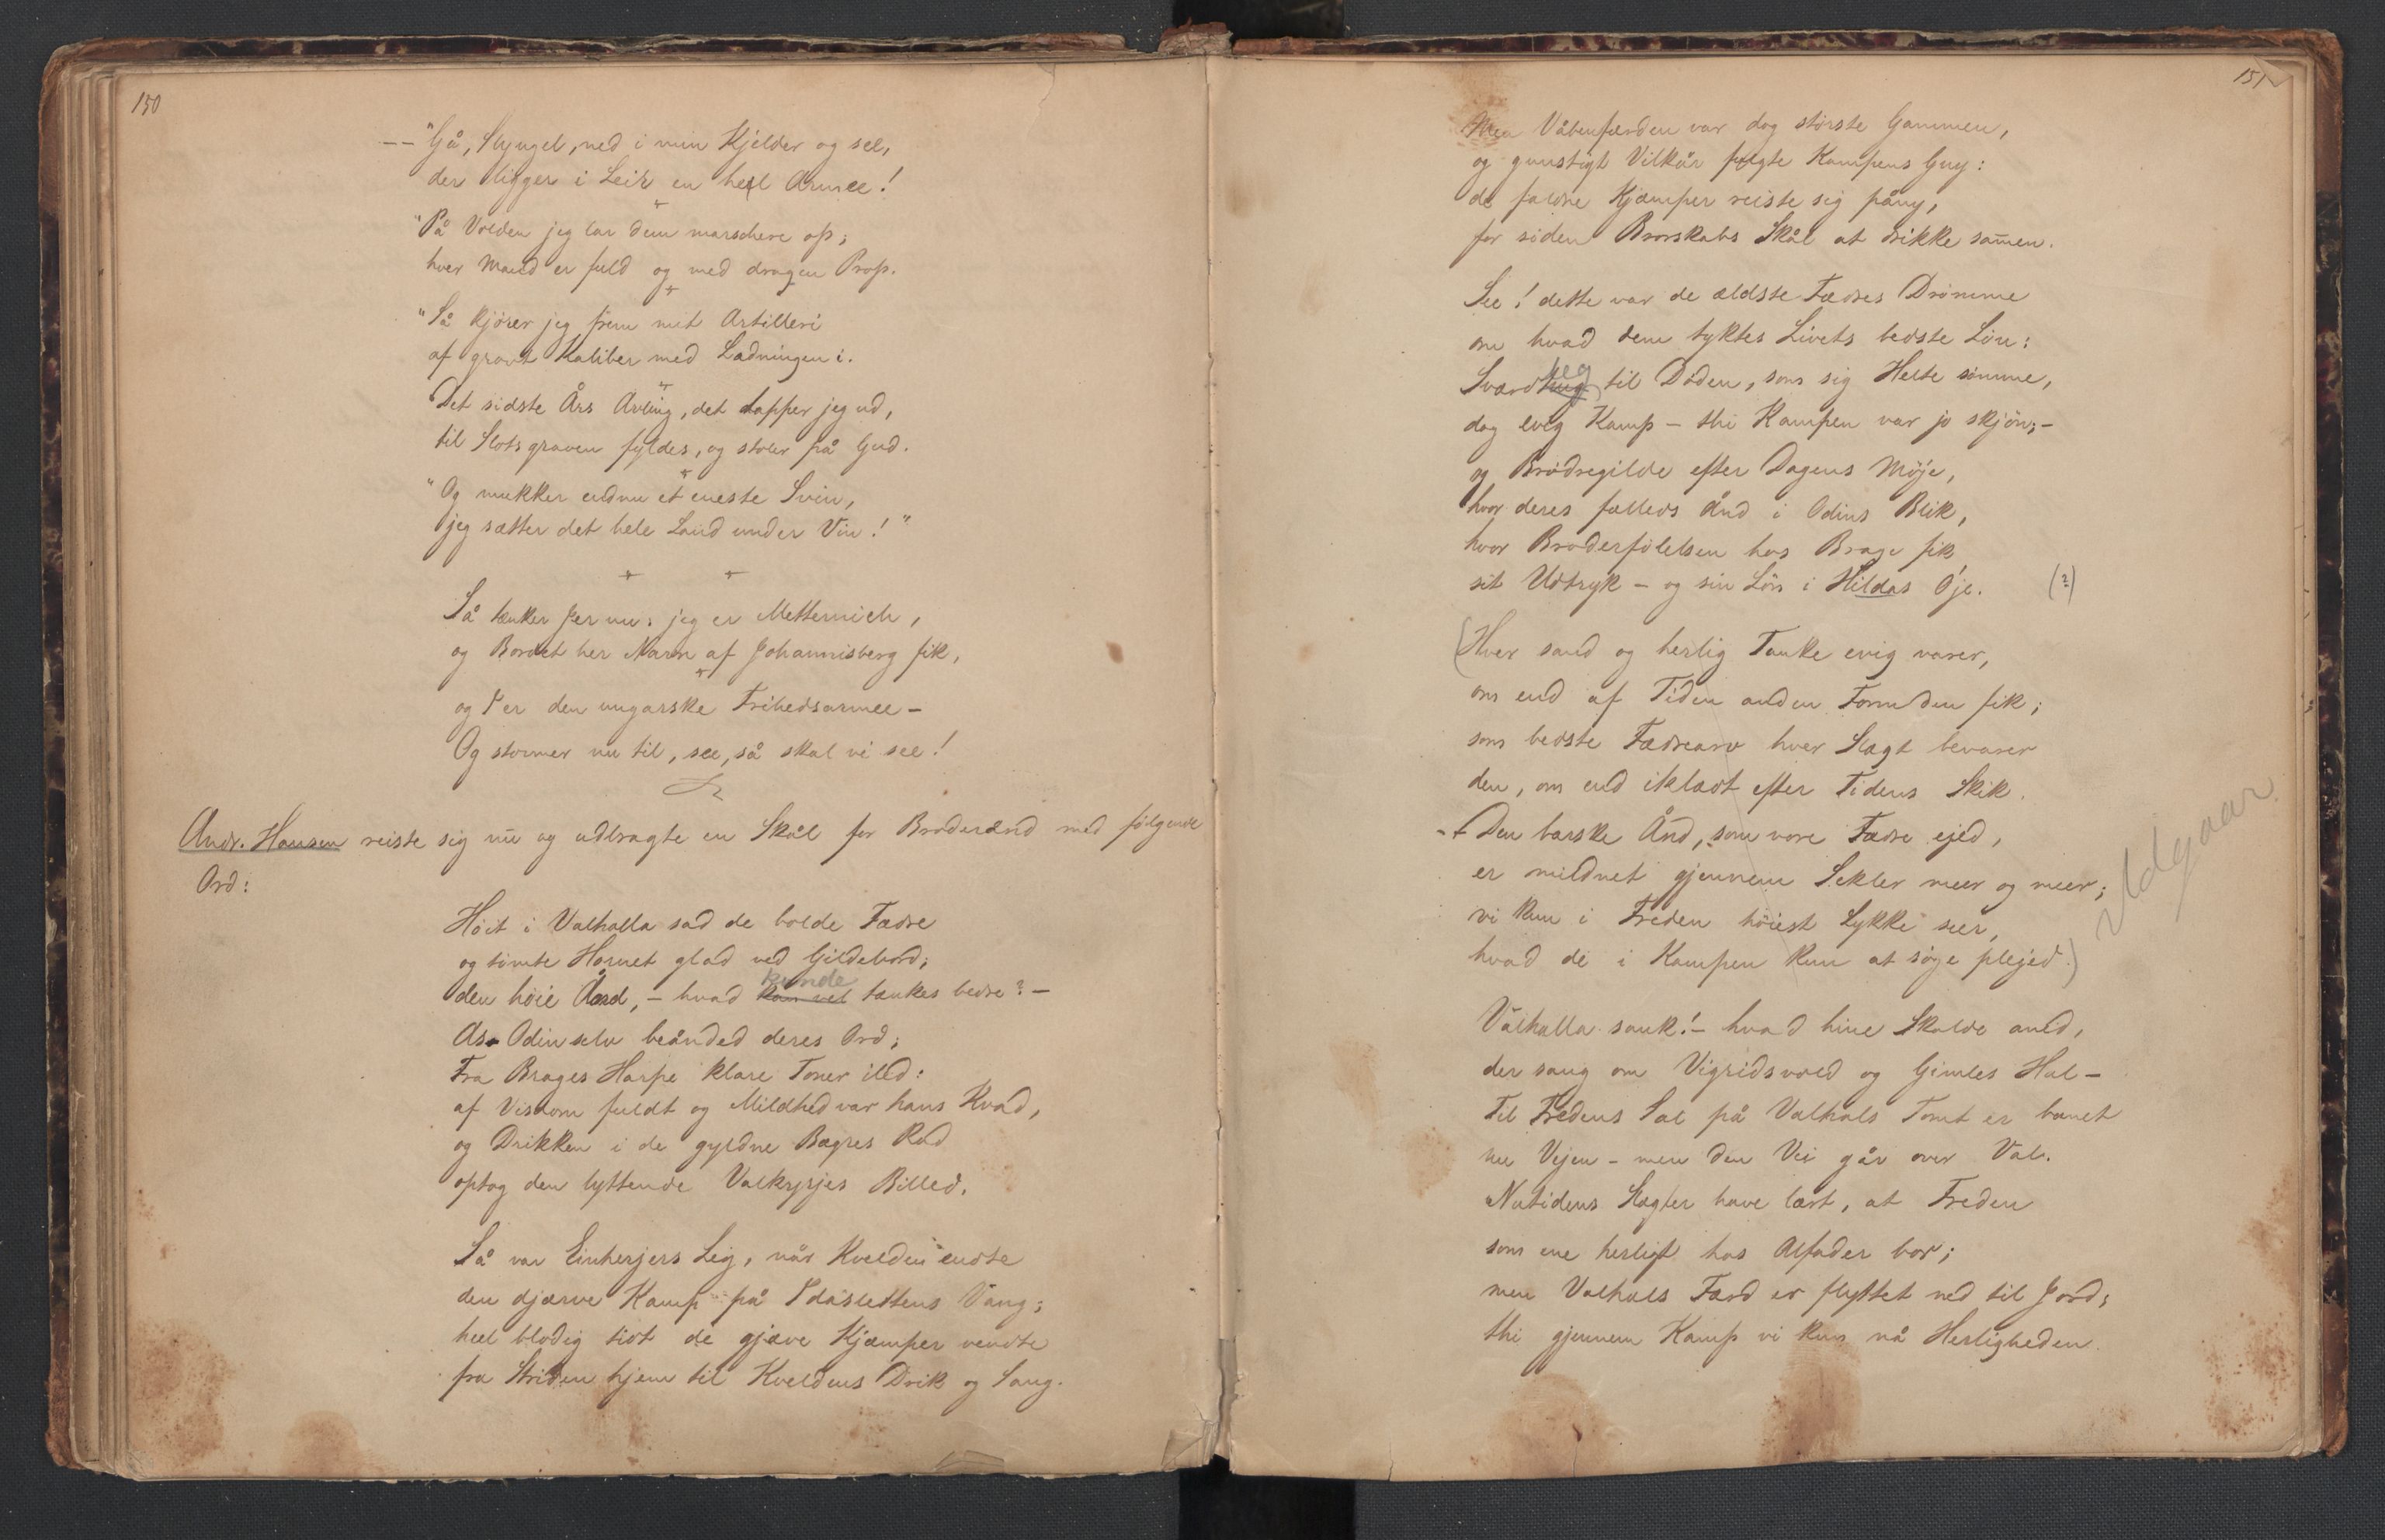 150
-- "Gå, Slyngel, ned i min Kjelder og see,
der ligger i Leir en heel Armee!
+
"På Volden jeg lar dem marschere op;
hver Mand er fuld og med dragen Prop.
+
"Så kjører jeg frem mit Artilleri
af grovt Kaliber med Ladningen i.
+
Det sidste Års Avling, det tapper jeg ud,
til Slotsgraven fyldes, og stoler på Gud.
+
"Og mukker endnu et eneste Svin,
jeg sætter det hele Land under Vin!"
+ +
Så tænker Jer nu: jeg er Metternich,
og Bordet her Navn af Johannisberg fik,
+
og I er den ungarske Frihedsarmee –
Og stormer nu til, see, så skal vi see!
Andr. Hansen reiste sig nu og udbragte en Skål for Broderånd med følgende
Ord:
Høit i Valhalla sad de bolde Fædre
og tømte Hornet glad ved Gildebord;
kunde
den høie Ånd, – hvad kan vel tænkes bedre? –
As-Odin selv beånded deres Ord;
Fra Brages Harpe klare Toner iled:
af Visdom fuldt og Mildhed var hans Kvad,
og Drikken i de gyldne Bægres Rad
optog den lyttende Valkyrjes Billed.
Så var Einherjers Leg, når Kvelden endte
den djærve Kamp på Idaslettens Vang;
heel blodig tidt de gjæve Kjæmper vendte
fra Striden hjem til Kveldens Drik og Sang.
151
Men Våbenfærden var dog største Gammen,
og gunstigt Vilkår fulgte Kampens Gny:
de faldne Kjæmper reiste sig påny,
for siden Brorskabs Skål at drikke sammen.
See! dette var de ældste Fædres Drømme
om hvad dem tyktes Livets bedste Løn:
leg
Sværdhug til Døden, som sig Helte sømme,
dog evig Kamp – thi Kampen var jo skjøn; –
og Brødregilde efter Dagens Møje,
hvor deres fælleds Ånd i Odins Blik,
hvor Broderfølelsen hos Brage fik
sit Udtryk – og sin Løn i Hildas Øje. (?)
(Hver sand og herlig Tanke evig varer,
om end af Tiden anden Form den fik;
som bedste Fædrearv hver Slægt bevarer
den, om end iklædt efter Tidens Skik.
-+ Den barske Ånd, som vore Fædre ejed,
er mildnet gjennem Sekler meer og meer;
vi kun i Freden høiest Lykke seer,
hvad de i Kampen kun at søge plejed.)
Udgaar
Valhalla sank! – hvad hine Skalde aned,
der sang om Vigridsvold og Gimles Hal –
Til Fredens Sal på Valhals Tomt er banet
nu Vejen – men den Vei går over Val.
Nutidens Slægter have lært, at Freden
som ene herligt hos Alfader bor;
men Valhals Færd er flyttet ned til Jord;
thi gjennem Kamp vi kun nå Herligheden.